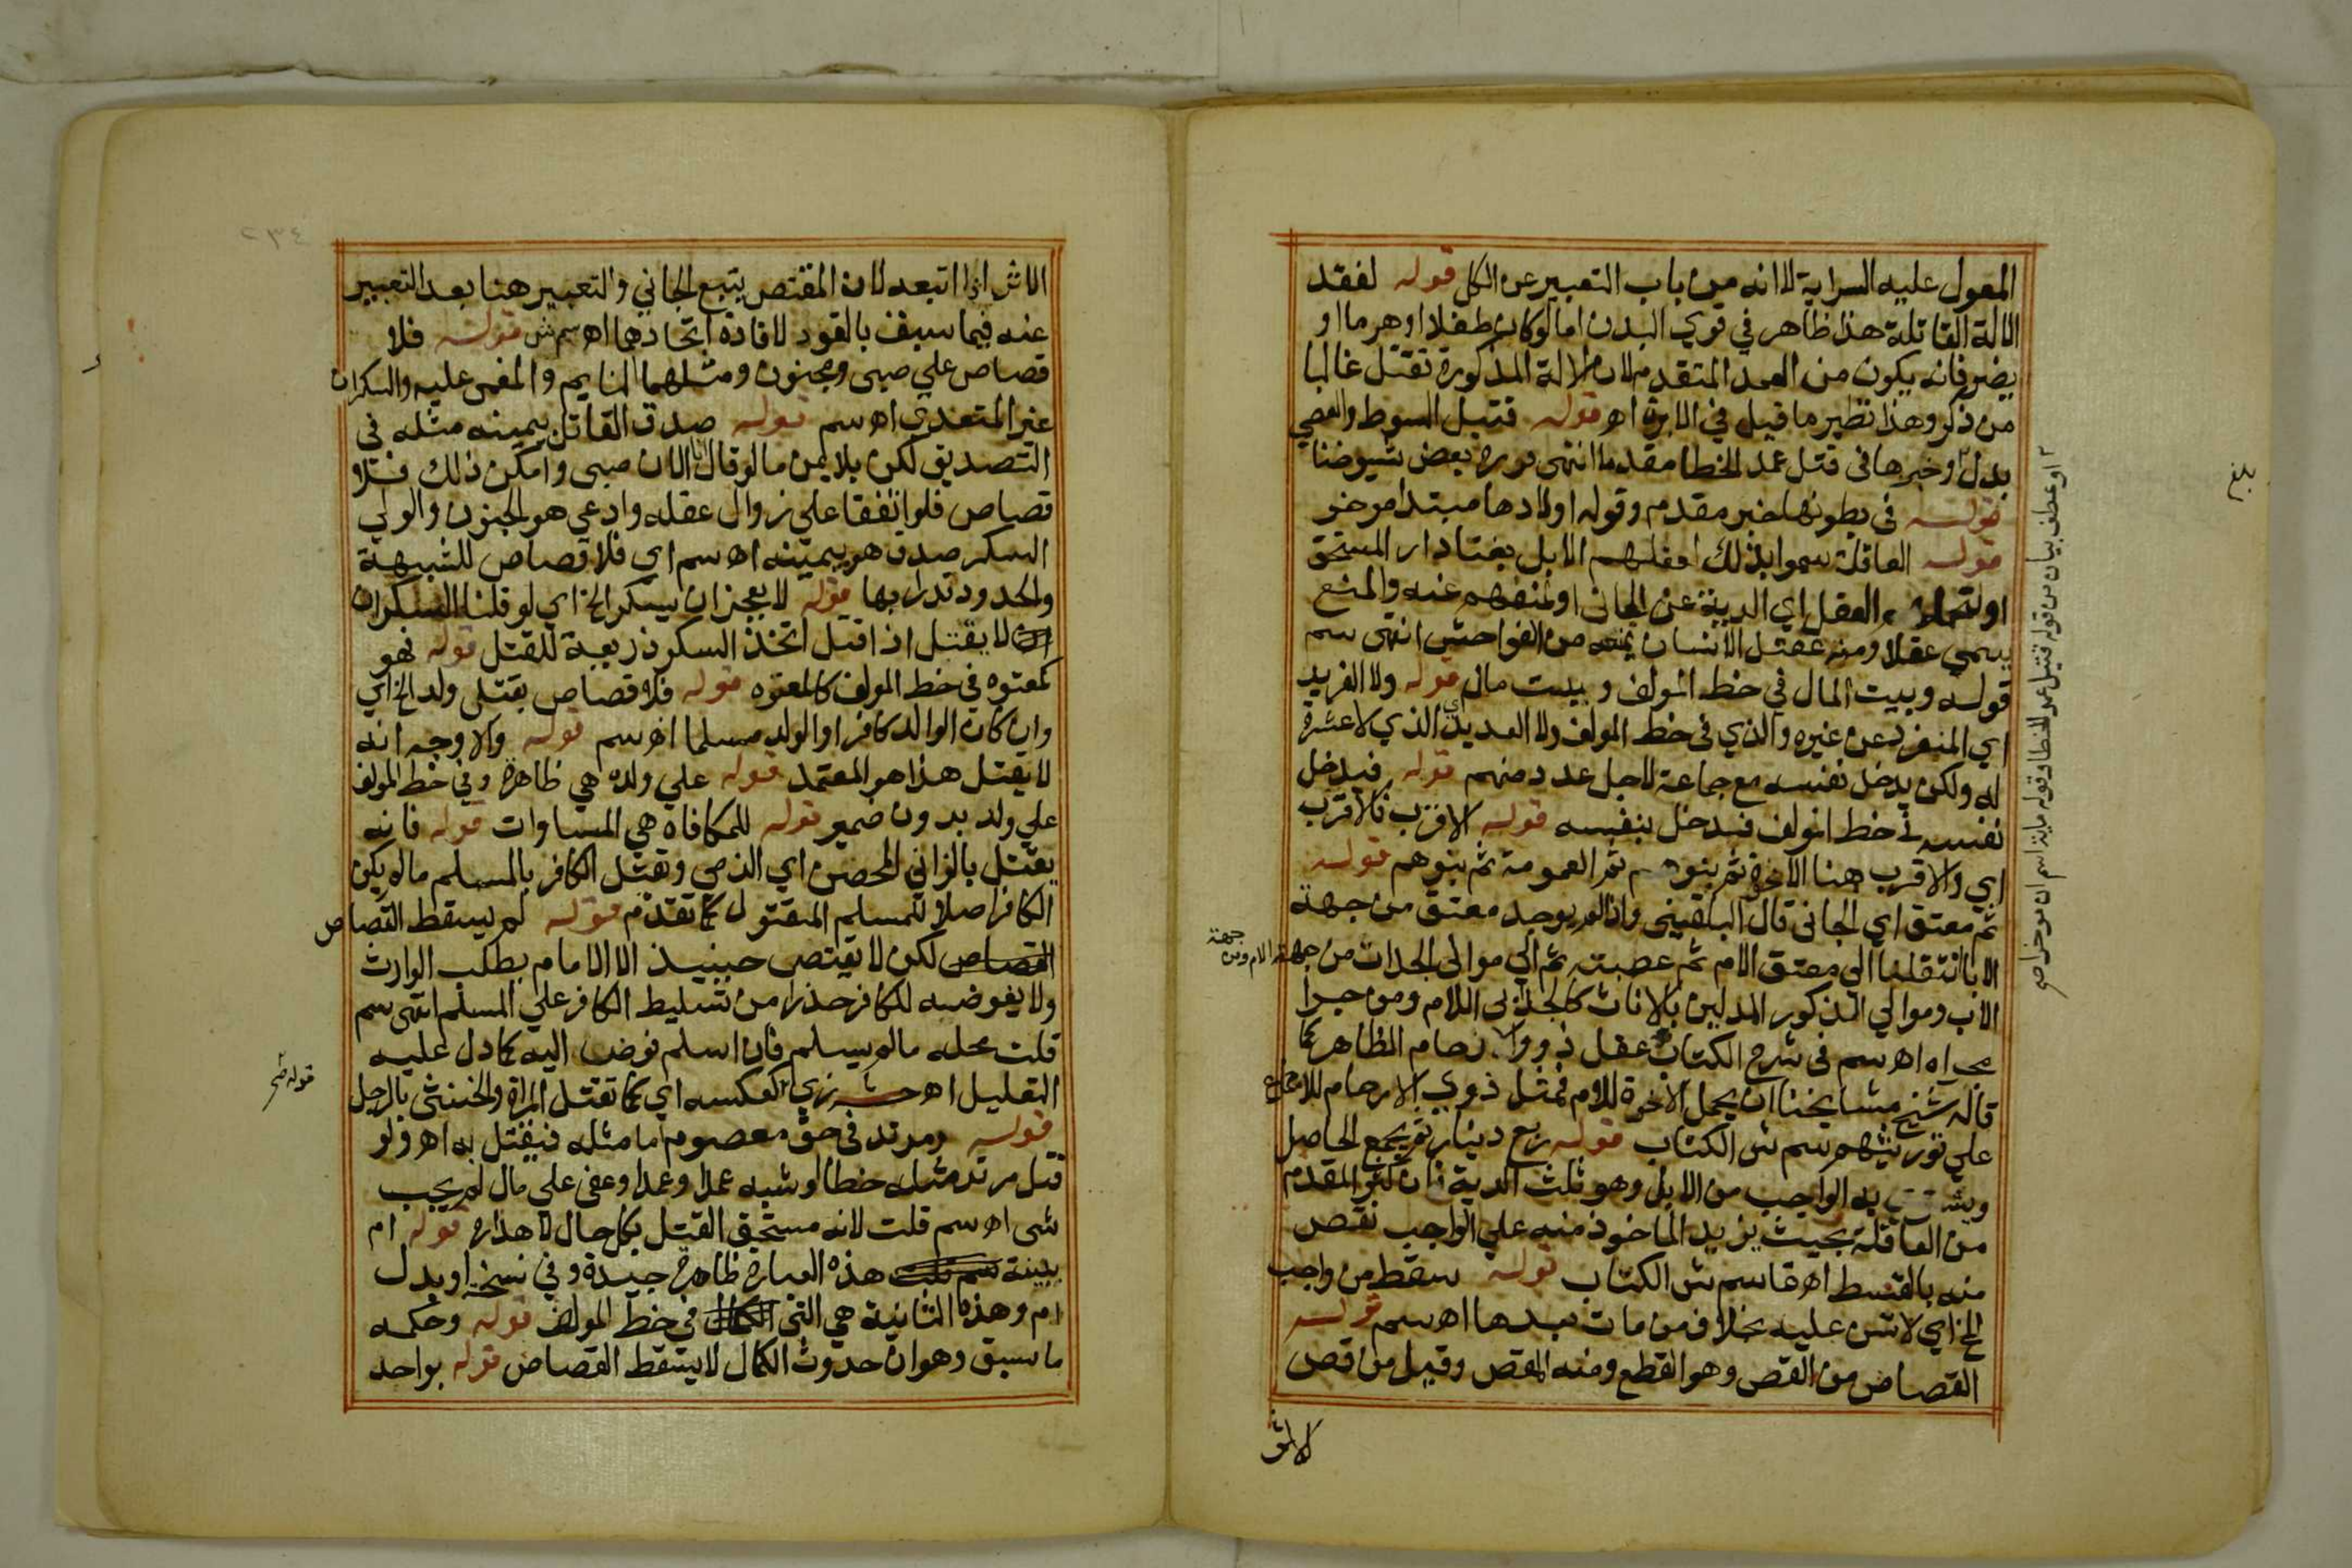 المعول عليه السراية لا انه من باب التعبير عن الكل قوله لفقد
الالة القاتلة هذا ظاهر في قوي البدن اما لو كان طفلا او هرما او
يضر فانه يكون من العمد المتقدم لان الالة المذكورة تقتل غالبا
من ذكر وهذا نظير ما قيل في الابرة اهـ قوله قتيل السوط والعصي
بدل وخبرها في قتل عمد الخطا مقدما انتهى بعض شيوخنا
قوله في بطونها خبر مقدم وقوله اولادها مبتدا موخر
قوله العاقلة سموا بذلك لعقلهم الابل بفنا دار المستحق
او لتحملهم العقل اي الدية عن الجاني او لمنعهم عنه والمنع
يسمى عقلا ومنه عقل الانسان يمنعه من الفواحش انتهى سم
قوله وبيت المال في خط المولف وبيت مال قوله ولا الفريد
اي المنفرد عن غيره والذي في خط المولف ولا العديد اي الذي لا عشرة
له ولكن يدخل نفسه مع جماعة لاجل عدد منهم قوله فيدخل
نفسه في خط المولف فيدخل بنفسه قوله الاقرب فالاقرب
اي والاقرب هنا الاخوة ثم بنوهم ثم العمومة ثم بنوهم قوله
ثم معتق اي الجاني قال البلقيني واذا لم يوجد معتق من جهة
الابا انتقلنا الي معتق الام ثم عصبته ثم الي موالي الجدات من جهة الام ومن جهة
الاب وموالي الذكور المدلين بالاناث كالجد ابي الام ومن جرا
مجراه اهـ سم في شرح الكتاب عقل ذووا الارحام الظاهر كما
قاله شيخ مشايخنا ان يحمل الاخوة للام قبل ذوي الارحام للاجماع
علي توريثهم سم ش الكتاب قوله ربع دينار ثم يجمع الحاصل
ويشترى به الواجب من الابل وهو ثلث الدية فان كثر المقدم
من العاقلة بحيث يزيد الماخوذ منه علي الواجب نقص
منه بالقسط اهـ قاسم ش الكتاب قوله سقط من واجب
الخ اي لا شي عليه بخلاف من مات بعدها اهـ سم قوله
القصاص من القص وهو القطع ومنه المقص وقيل من اقص
الاثر
او عطف بيان من قوله قتيل عمد الخطا وقوله ماية اسم ان موخر اصح
بلغ
٢٣٤
الاثر اذا اتبعه لان المقتص يتبع الجاني والتعبير هنا بعد التعبير
عنه فيما سبق بالقود لافادة اتحادهما اهـ سم ش قوله فلا
قصاص علي صبي ومجنون ومثلهما النايم والمغمى عليه والسكران
غير المتعدي اهـ سم قوله صدق القاتل بيمينه مثله في
التصديق لكن بلا يمين ما لو قال انا الان صبي وامكن ذلك فلا
قصاص فلو اتفقا علي زوال عقله وادعي هو الجنون والولي
السكر صدق هو بيمينه اهـ سم اي فلا قصاص للشبهة
والحدود تدرا بها قوله لا يعجز ان يسكر الخ اي لو قلنا السكران
لا يقتل اذا قتل اتخذ السكر ذريعة للقتل قوله فهو
كمعتوه في خط المولف كالمعتوه قوله فلا قصاص بقتل ولد الخ اي
وان كان الوالد كافرا والولد مسلما اهـ سم قوله والاوجه انه
لا يقتل هذا هو المعتمد قوله علي ولده هي ظاهرة وفي خط المولف
علي ولد بدون ضمير قوله للمكافاة هي المساوات قوله فانه
يقتل بالزاني المحصن اي الذمي وتقتل الكافر بالمسلم ما لم يكن
الكافر اصلا للمسلم المقتول كما تقدم قوله لم يسقط القصاص
القصاص لكن لا يقتص حينيذ الا الامام بطلب الوارث
ولا يفوضه للكافر حذرا من تسليط الكافر علي المسلم انتهى سم
قلت محله ما لم يسلم فان اسلم فوض اليه كما دل عليه
التعليل اهـ كعكسه اي كما تقتل المراة والخنثى بالرجل
قوله ومرتد في حق معصوم اما مثله فيقتل به اهـ ولو
قتل مرتد مثله خطا او شبه عمد او عمدا وعفى علي مال لم يجب
شي اهـ سم قلت لانه مستحق القتل بكل حال لاهداره قوله ام
بينة هذه العبارة ظاهرة جيدة وفي نسخة او بدل
ام وهذه الثانية هي التي في خط المولف قوله وحكمه
ما سبق وهو ان حدوث الكمال لا يسقط القصاص قوله بواحد
قوله